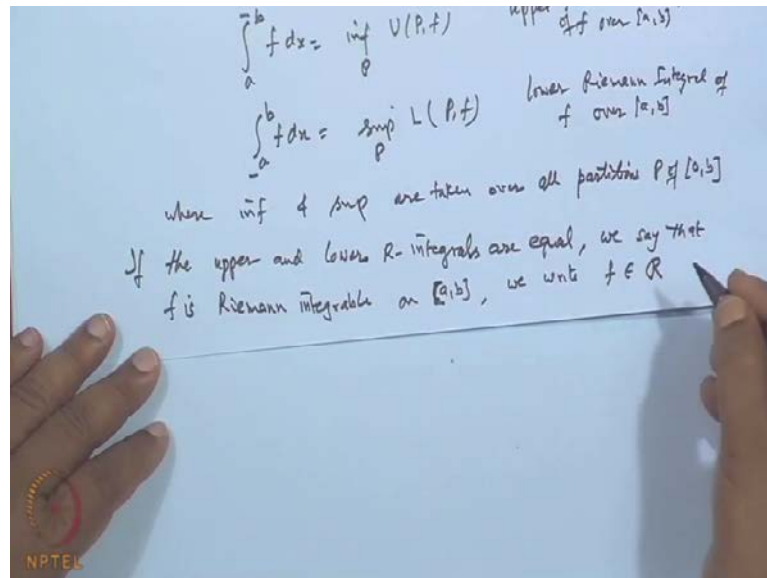 ∫_a^{-b} f dx = inf_P U(P,f) upper of f over [a,b]
∫_{-a}^b f dx = sup_P L(P,f) Lower Riemann Integral of
f over [a,b]
where inf & sup are taken over all partitions P of [a,b]
If the upper and lower R-integrals are equal, we say that
f is Riemann integrable on [a,b], we write f ∈ R
NPTEL